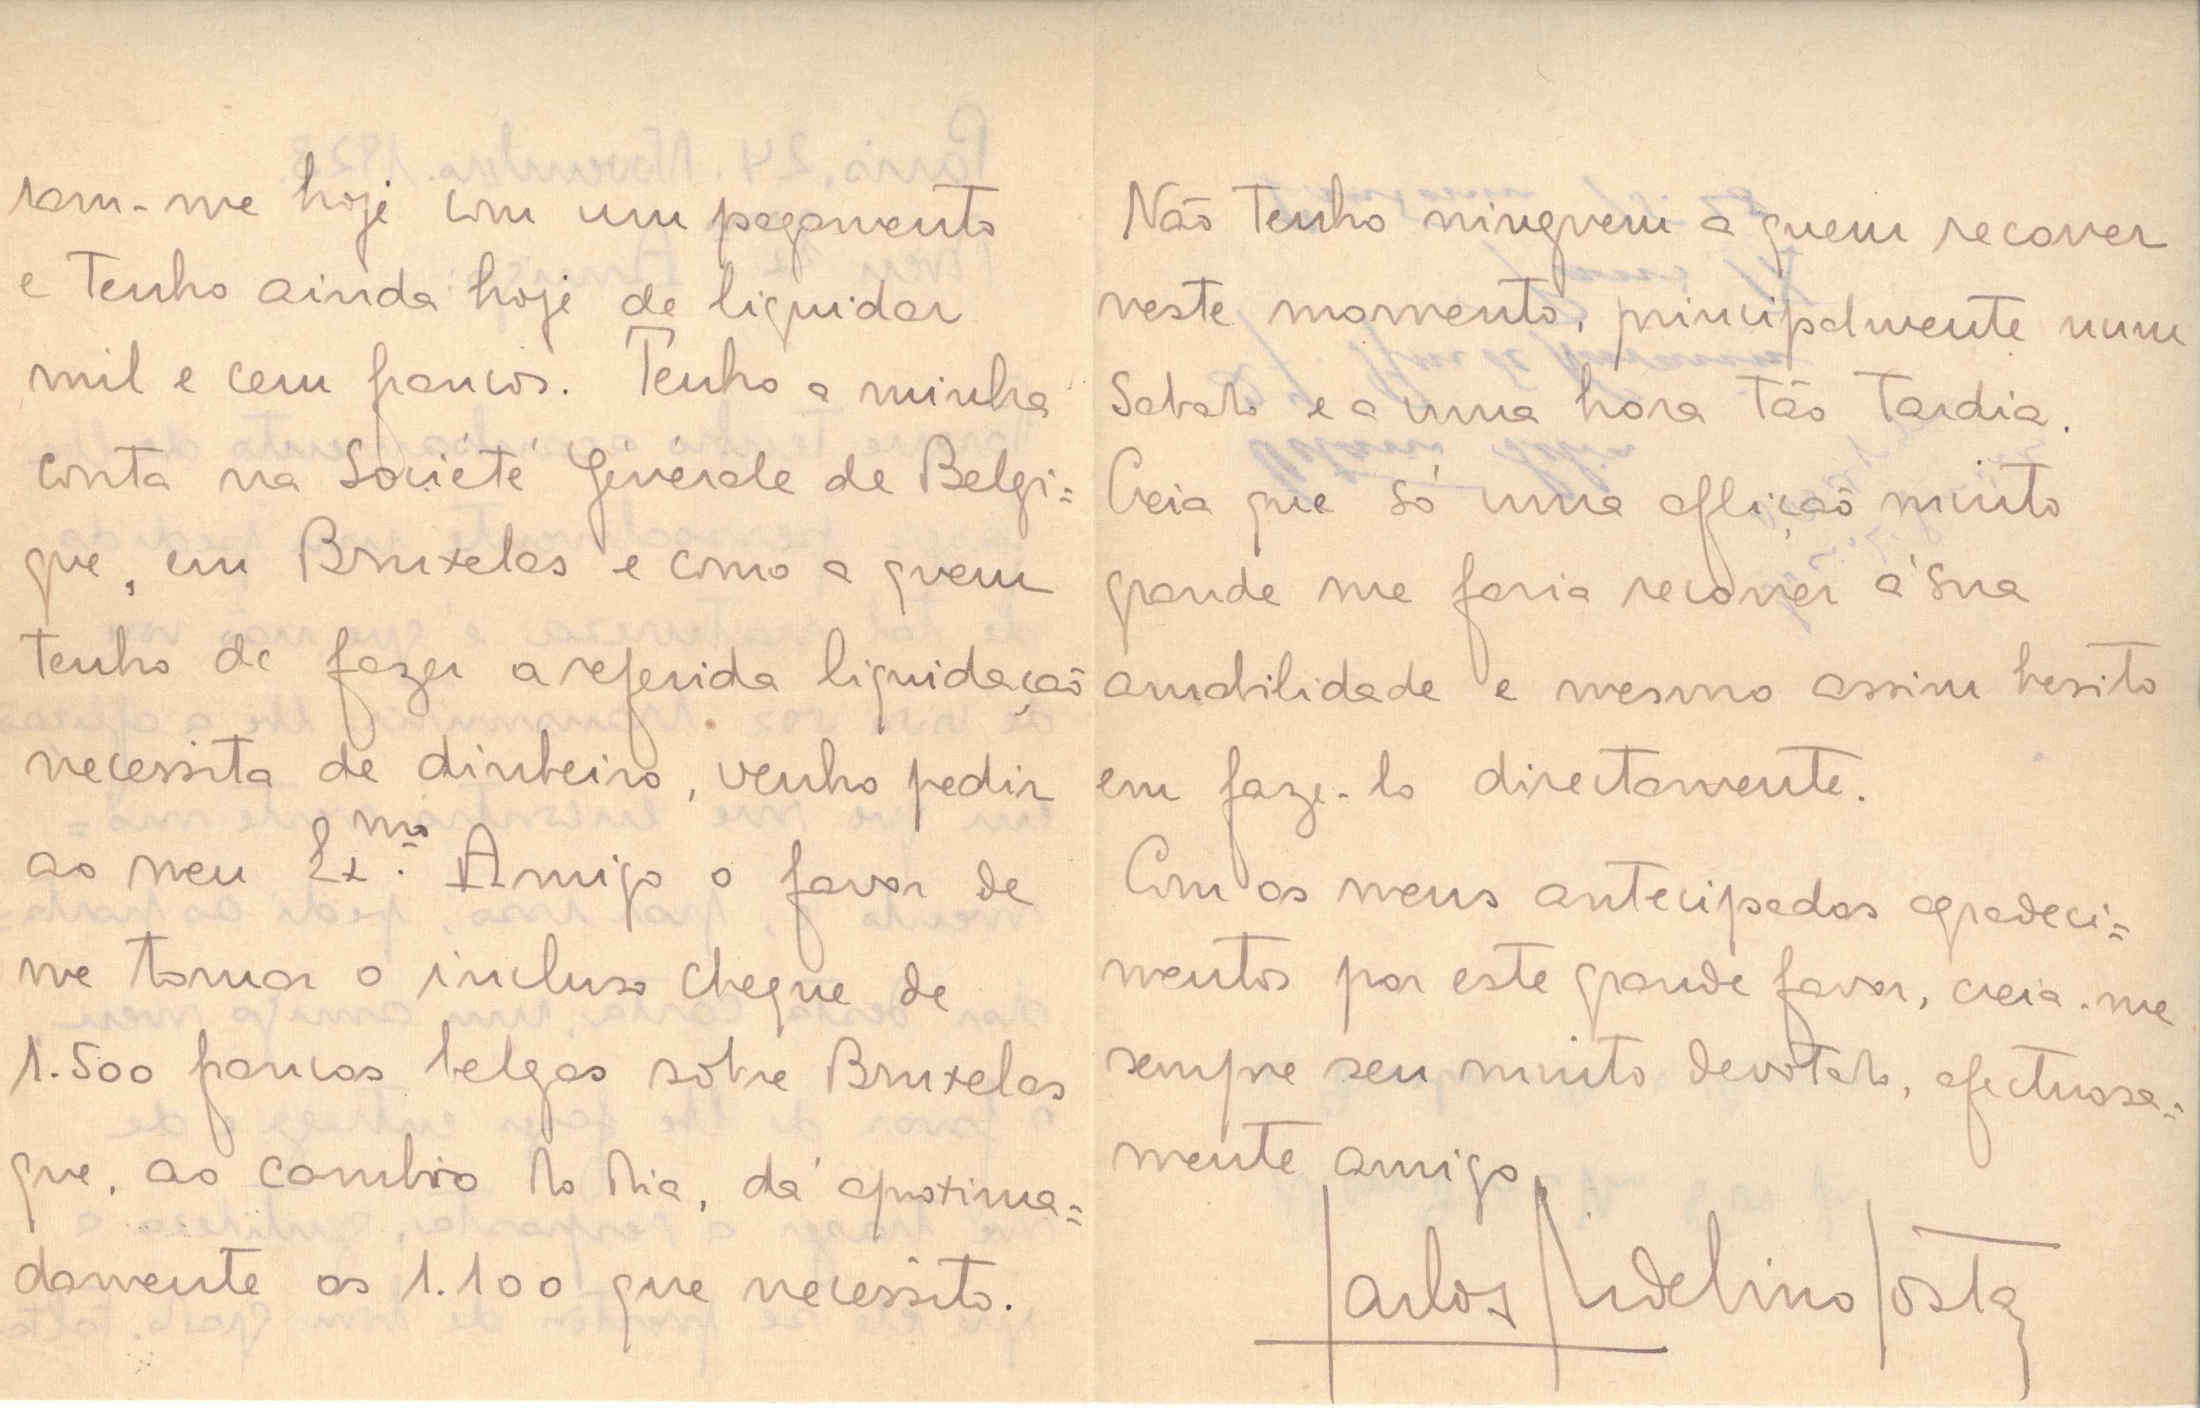 ram-me hoje com um pagamento
e Tenho ainda hoje de liquidar
mil e cem francos. Tenho a minha
conta na Société Génerale de Belgi=
que, em Bruxelas e como a quem
tenho de fazer a referida liquidação
necessita de dinheiro, venho pedir
ao meu Exmo. Amigo o favor de
me tomar o incluso cheque de
1.500 francos belgas sôbre Bruxelas
que, ao cambio do dia, dá aproxima=
damente os 1.100 que necessito.
Não Tenho ninguem a quem recorrer
neste momento, principalmente num
Sabado e a uma hora tão tardia.
Creia que só uma aflição muito
grande me faria recorrer á sua
amabilidade e mesmo assim hesito
em faze-lo directamente.
Com os meus antecipados agradeci=
mentos por este grande favor, creia-me
sempre seu muito devotado, afectuosa=
mente amigo
Carlos Adelino Costa